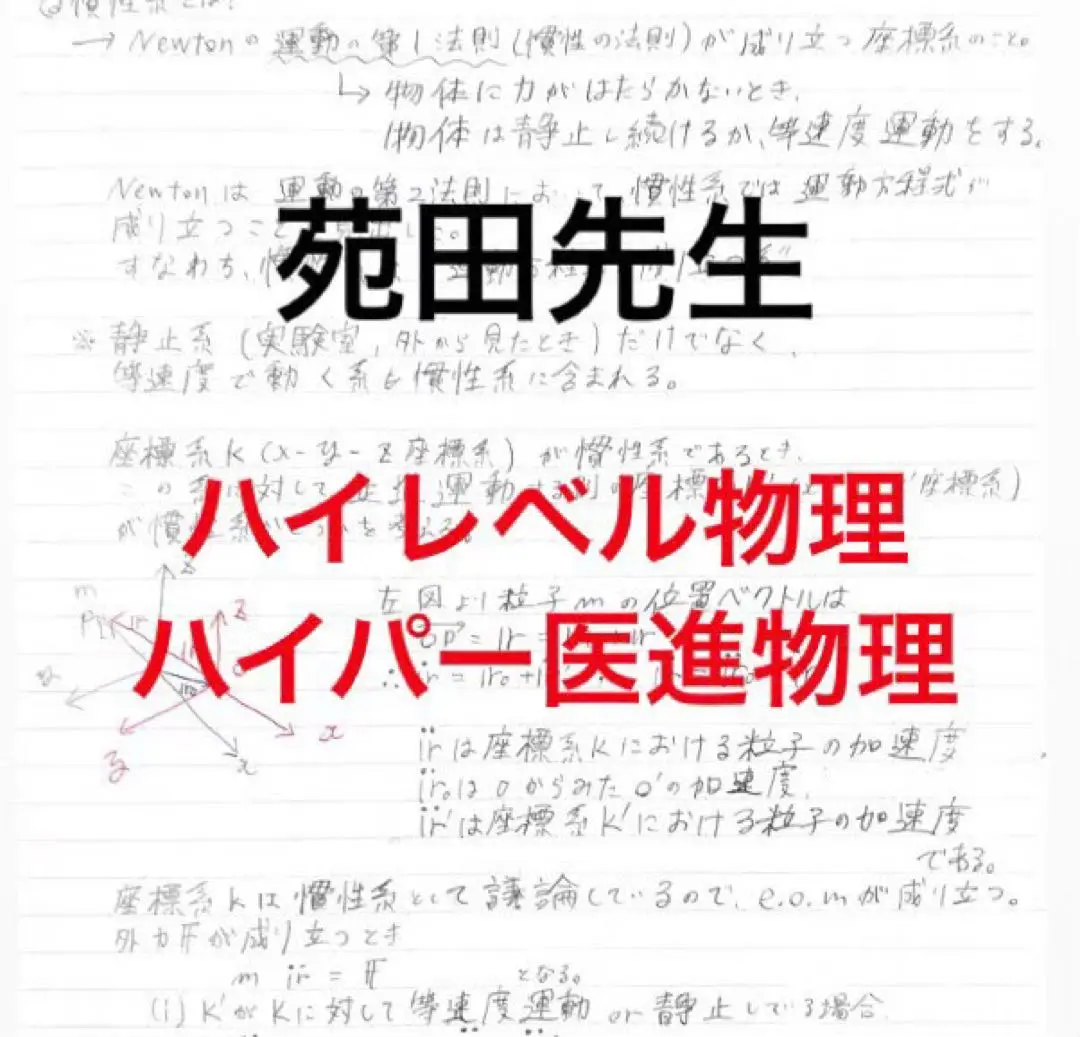 慣性系とは?
→ Newtonの運動の第1法則(慣性の法則)が成り立つ座標系のこと。
↳ 物体に力がはたらかないとき、
物体は静止し続けるか、等速度運動をする。
Newtonは運動の第2法則において慣性系では運動方程式が
成り立つこと
すなわち、
苑田先生
※ 静止系(実験室、外から見たとき)だけでなく、
等速度で動く系も慣性系に含まれる。
座標系K(x-y-z座標系)が慣性系であるとき、
この系に対して並進運動する別の座標系
座標系)
が慣性系かどうかを考える。
ハイレベル物理
ハイパー医進物理
z
m
P
z
y
x
y
x
左図より粒子mの位置ベクトルは
OP = r =
∴ r = r₀ +
r̈は座標系Kにおける粒子の加速度
r̈₀はOからみたO'の加速度、
r̈'は座標系K'における粒子の加速度
である。
座標系Kは慣性系として議論しているので、e.o.mが成り立つ。
外力Fが成り立つとき
m r̈ = F となる。
(i) K'がKに対して等速度運動or静止している場合